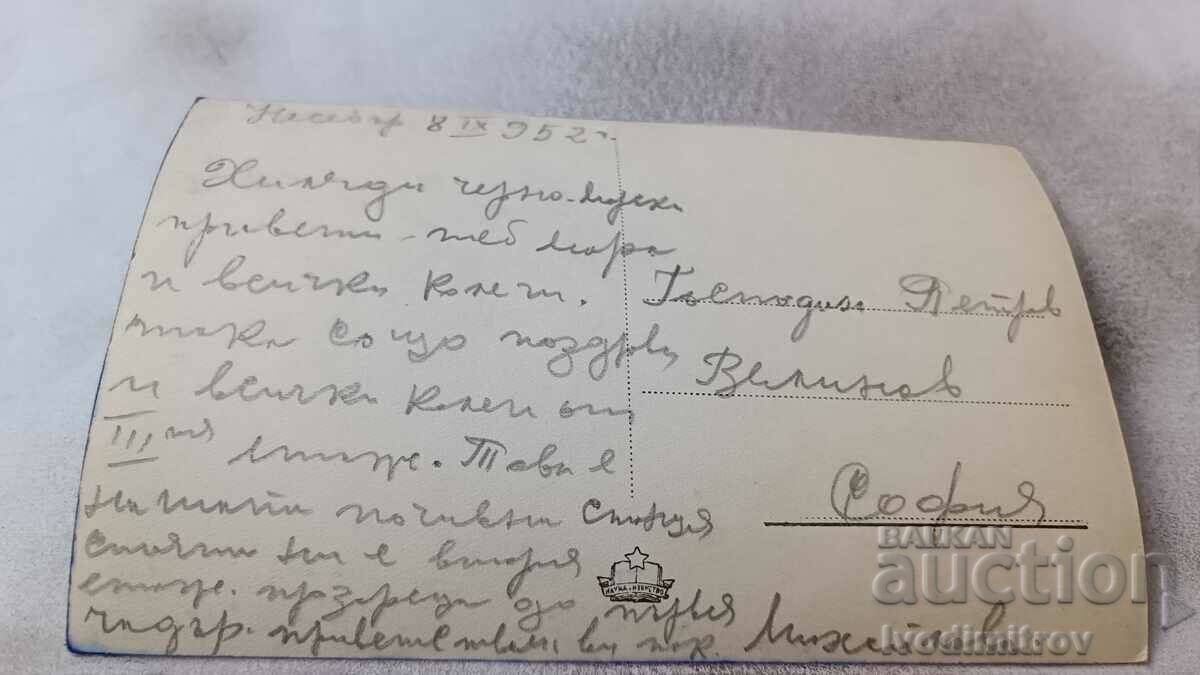 Несебър 8 IX 952 г.
Хиляди черно-морски
привети - теб
и всички колеги.
така също поздрави
и всички колеги от
III тия етаж. Това е
нашата почивна станция
стаята ни е втория
етаж. прозореца до третия
чадър. приветствам ви
Господин Петров
Велинов
София
НАУКА И ИЗКУСТВО
BALKAN
auction
Ivodimitrov